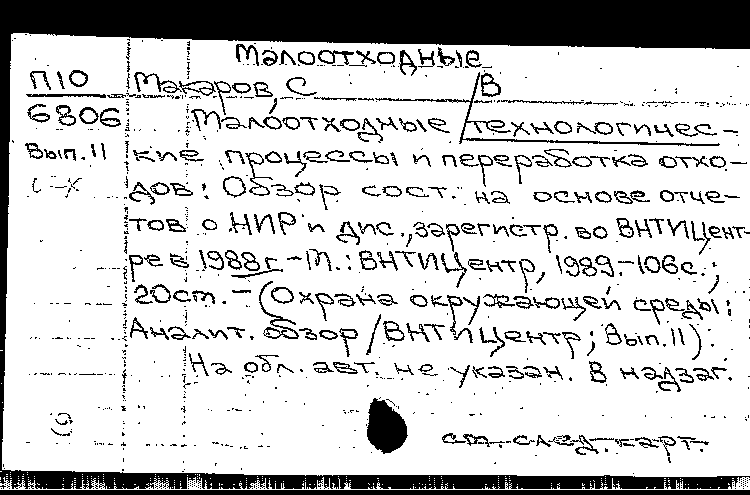 Малоотходные
П10 Макаров, С В
6806 Малоотходные технологичес-
Вып.11 кие процессы и переработка отхо-
с-х дов: Обзор сост. на основе отче-
тов о НИР и дис., зарегистр. во ВНТИЦент-
ре в 1988 г. - М.: ВНТИЦентр, 1989. - 106с.;
20см. - (Охрана окружающей среды:
Аналит. обзор / ВНТИЦентр; Вып.11).
На обл. авт. не указан. В надзаг.
см. след. карт.